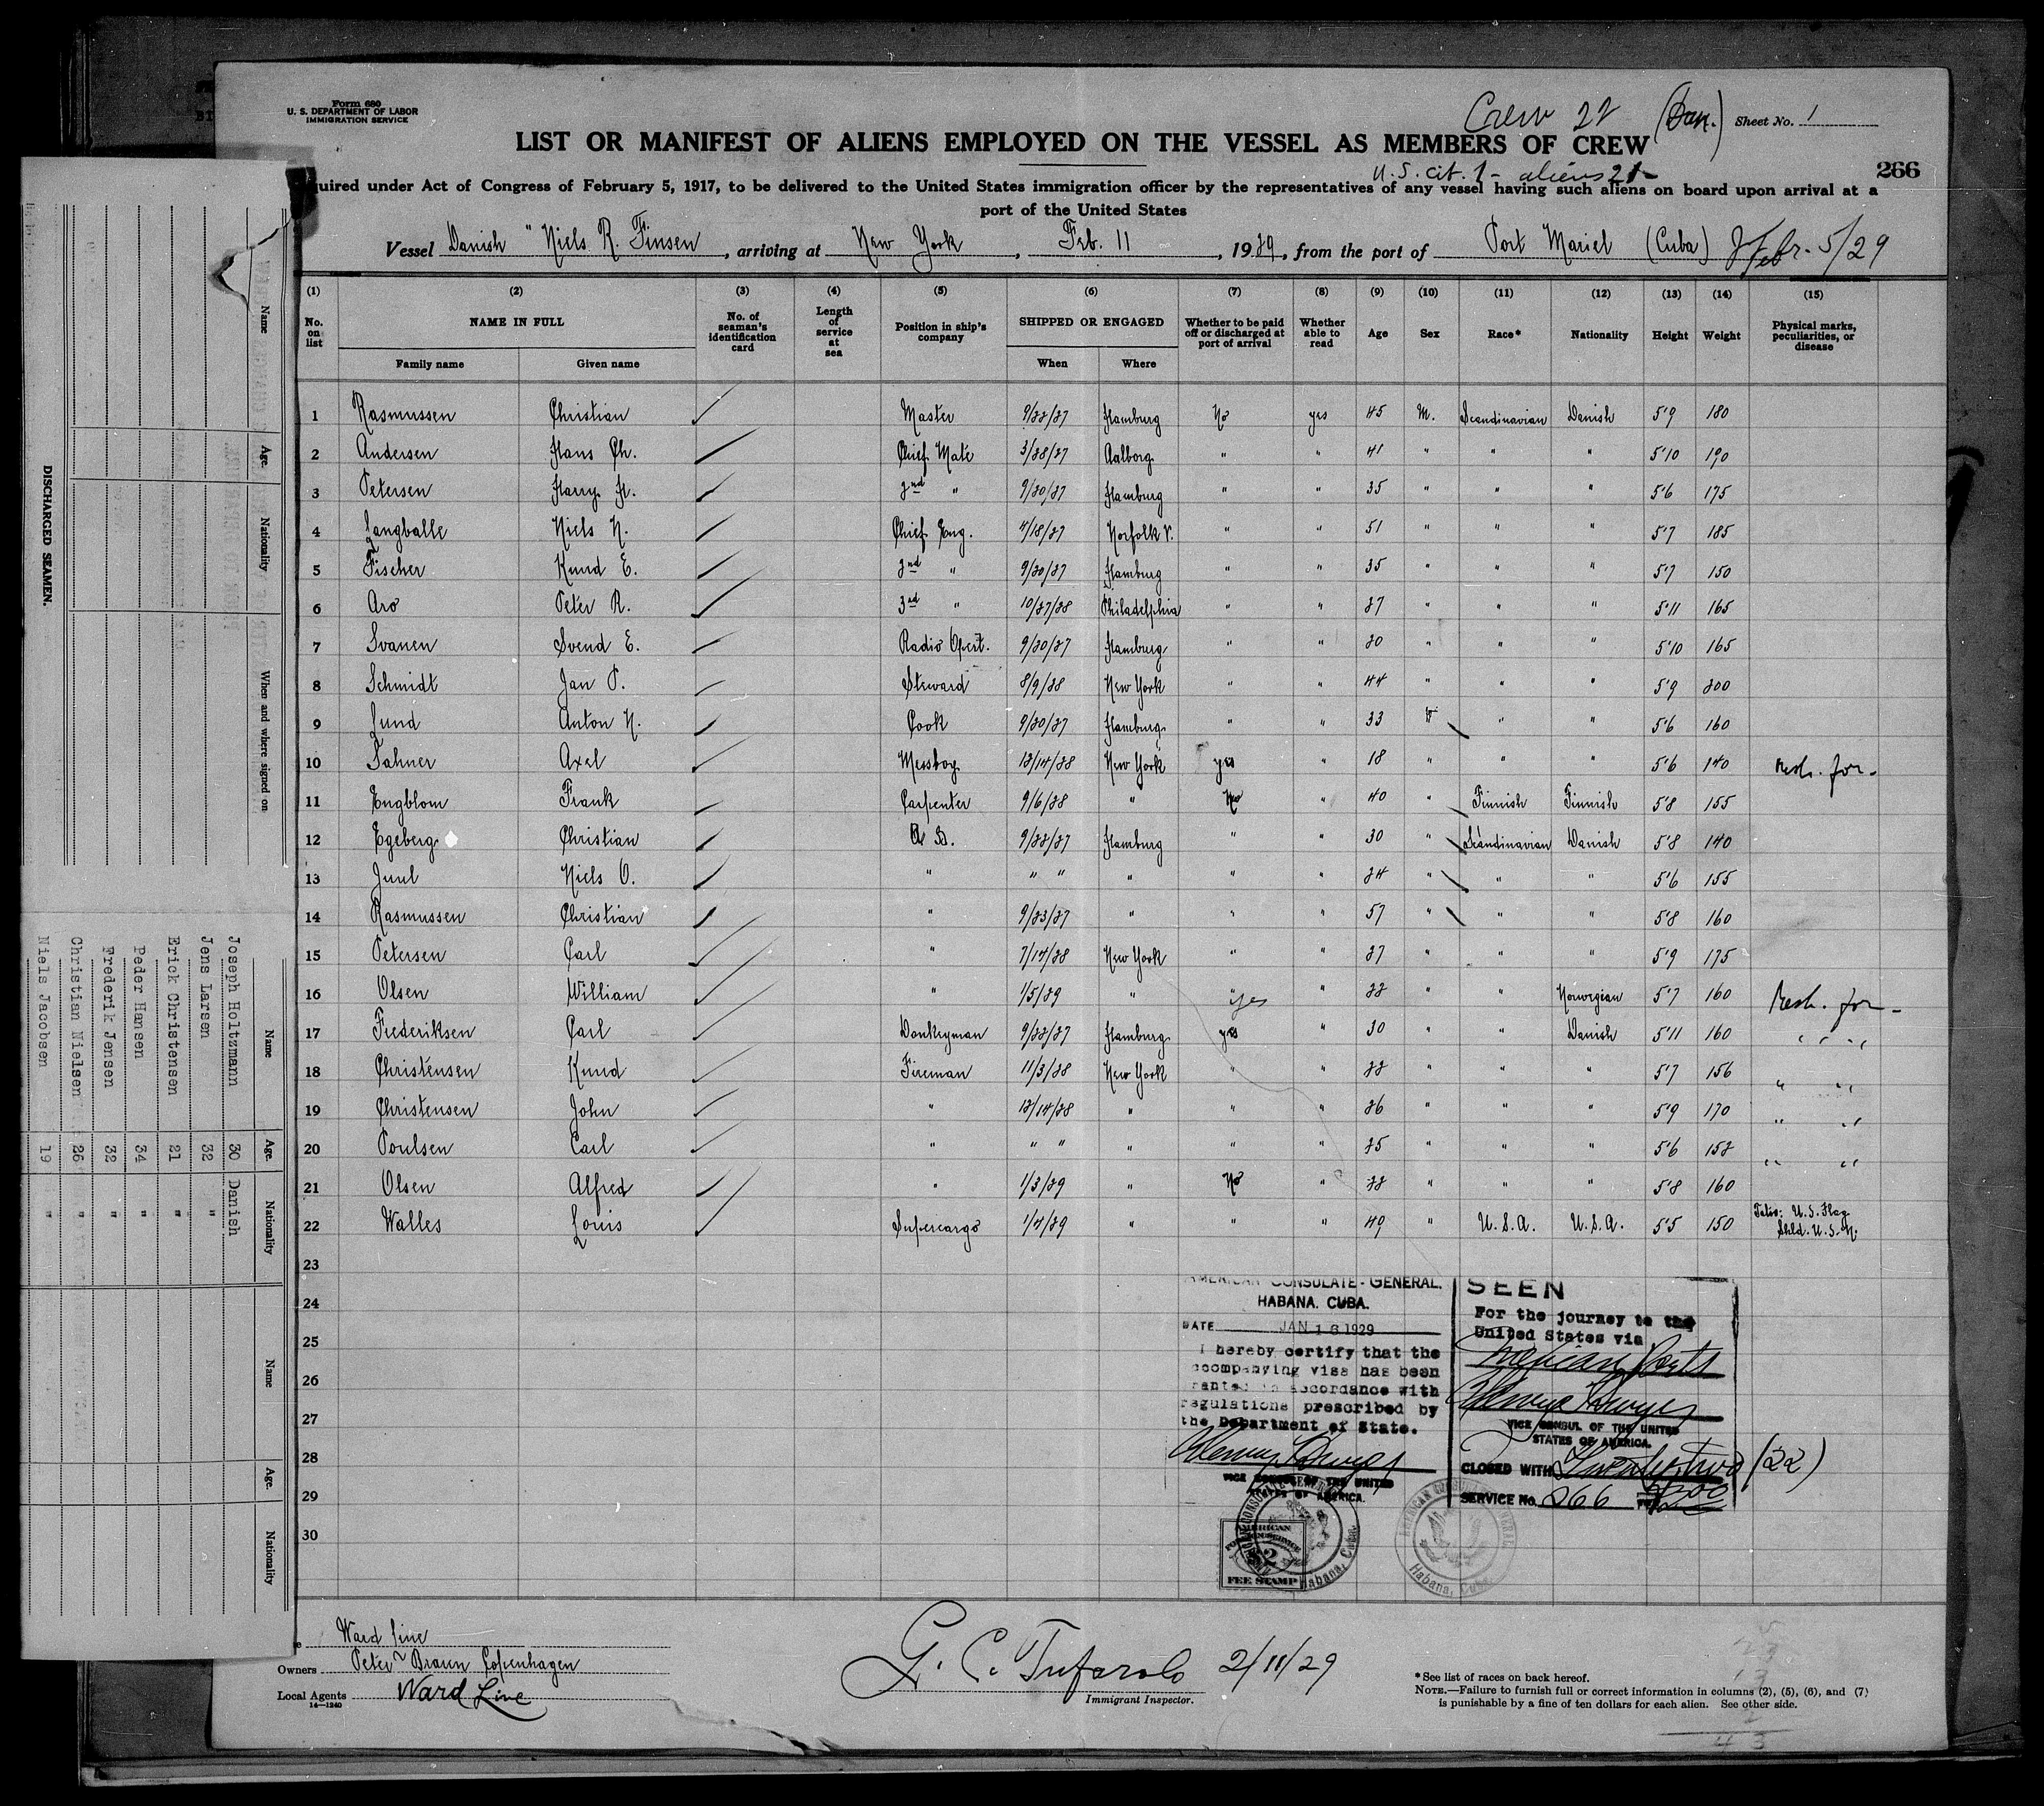 Form 680
U. S. DEPARTMENT OF LABOR
IMMIGRATION SERVICE
Crew 22 (Dan.) Sheet No. 1
LIST OR MANIFEST OF ALIENS EMPLOYED ON THE VESSEL AS MEMBERS OF CREW
U.S. cit. 1 - aliens 21 -
266
quired under Act of Congress of February 5, 1917, to be delivered to the United States immigration officer by the representatives of any vessel having such aliens on board upon arrival at a
port of the United States
Vessel Danish "Niels R. Finsen, arriving at New York, Feb. 11, 1929, from the port of Port Mariel (Cuba) Febr. 5/29
(1) (2) (3) (4) (5) (6) (7) (8) (9) (10) (11) (12) (13) (14) (15)
No. on list NAME IN FULL No. of seaman's identification card Length of service at sea Position in ship's company SHIPPED OR ENGAGED Whether to be paid off or discharged at port of arrival Whether able to read Age Sex Race* Nationality Height Weight Physical marks, peculiarities, or disease
Family name Given name When Where
1 Rasmussen Christian Master 9/22/27 Hamburg No yes 45 M. Scandinavian Danish 5'9 180
2 Andersen Hans Ch. Chief Mate 3/28/27 Aalborg " " 41 " " " 5'10 190
3 Petersen Harry H. 2nd " 9/20/27 Hamburg " " 35 " " " 5'6 175
4 Langballe Niels N. Chief Eng. 4/18/27 Norfolk V. " " 51 " " " 5'7 185
5 Fischer Knud E. 2nd " 9/20/27 Hamburg " " 35 " " " 5'7 150
6 Aro Peter R. 3rd " 10/27/28 Philadelphia " " 27 " " " 5'11 165
7 Svanen Svend E. Radio Opert. 9/20/27 Hamburg " " 20 " " " 5'10 165
8 Schmidt Jan P. Steward 8/9/28 New York " " 44 " " " 5'9 200
9 Lund Anton N. Cook 9/20/27 Hamburg " " 33 " " " 5'6 160
10 Tahner Axel Messboy 12/14/28 New York yes " 18 " " " 5'6 140 Resh. for-
11 Engblom Frank Carpenter 9/6/28 " No " 40 " Finnish Finnish 5'8 155
12 Egeberg Christian A B. 9/22/27 Hamburg " " 30 " Scandinavian Danish 5'8 140
13 Juul Niels O. " " " " " " 24 " " " 5'6 155
14 Rasmussen Christian " 9/23/27 " " " 57 " " " 5'8 160
15 Petersen Carl " 7/14/28 New York " " 27 " " " 5'9 175
16 Olsen William " 1/5/29 " yes " 22 " " Norwegian 5'7 160 Resh. for-
17 Frederiksen Carl Donkeyman 9/22/27 Hamburg yes " 30 " " Danish 5'11 160 " "
18 Christensen Knud Fireman 11/3/28 New York " " 22 " " " 5'7 156 " "
19 Christensen John " 12/14/28 " " " 26 " " " 5'9 170 " "
20 Poulsen Carl " " " " " " 25 " " " 5'6 152 " "
21 Olsen Alfred " 1/3/29 " No " 22 " " " 5'8 160
22 Walles Louis Supercargo 1/4/29 " " " 49 " U.S.A. U.S.A. 5'5 150 Tatio: U.S. Flag Shld. U.S.N.
23
24
25
26
27
28
29
30
AMERICAN CONSULATE-GENERAL.
HABANA. CUBA.
DATE JAN 16 1929
I hereby certify that the
accompanying visa has been
granted in accordance with
regulations prescribed by
the Department of State.
VICE CONSUL OF THE UNITED
STATES OF AMERICA.
SEEN
For the journey to the
United States via
Mexican Ports
VICE CONSUL OF THE UNITED
STATES OF AMERICA.
CLOSED WITH Twenty-two (22)
SERVICE No. 266
AMERICAN
2
FEE STAMP
Habana, Cuba.
Habana, Cuba
Ward Line
Owners Peter Braun Copenhagen
Local Agents Ward Line
14—1240
G. C. Tufarolo 2/11/29
Immigrant Inspector.
*See list of races on back hereof.
NOTE.—Failure to furnish full or correct information in columns (2), (5), (6), and (7)
is punishable by a fine of ten dollars for each alien. See other side.
43
DISCHARGED SEAMEN.
Name Age. Nationality When and where signed on
Name Age. Nationality Name Age. Nationality
Joseph Holtzmann 30 Danish
Jens Larsen 32 "
Erick Christensen 21 "
Peder Hansen 34 "
Frederik Jensen 32 "
Christian Nielsen 26 "
Niels Jacobsen 19 "